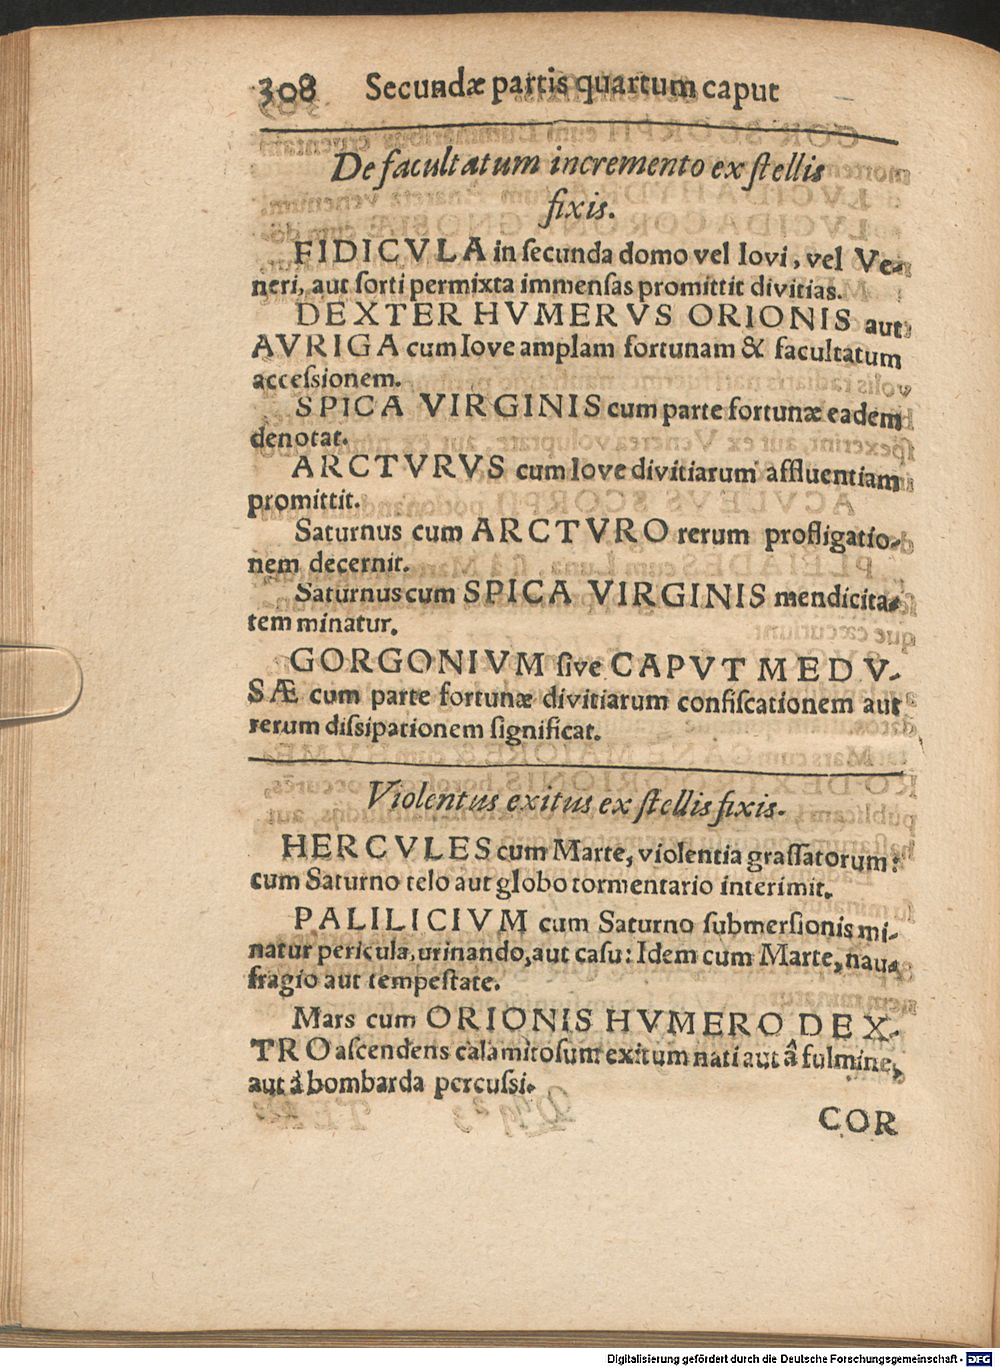 308 Secundæ partis quartum caput
De facultatum incremento ex stellis
fixis.
FIDICVLA in secunda domo vel Iovi, vel Ve-
neri, aut sorti permixta immensas promittit divitias.
DEXTER HVMERVS ORIONIS aut
AVRIGA cum Iove amplam fortunam & facultatum
accessionem.
SPICA VIRGINIS cum parte fortunæ eadem
denotat.
ARCTVRVS cum Iove divitiarum affluentiam
promittit.
Saturnus cum ARCTVRO rerum profligatio-
nem decernit.
Saturnus cum SPICA VIRGINIS mendicita-
tem minatur.
GORGONIVM sive CAPVT MEDV-
SÆ cum parte fortunæ divitiarum confiscationem aut
rerum dissipationem significat.
Violentus exitus ex stellis fixis.
HERCVLES cum Marte, violentia grassatorum:
cum Saturno telo aut globo tormentario interimit.
PALILICIVM cum Saturno submersionis mi-
natur pericula, urinando, aut casu: Idem cum Marte, nau-
fragio aut tempestate.
Mars cum ORIONIS HVMERO DEX-
TRO ascendens calamitosum exitum nati aut â fulmine,
aut â bombarda percussi.
COR
Digitalisierung gefördert durch die Deutsche Forschungsgemeinschaft - DFG